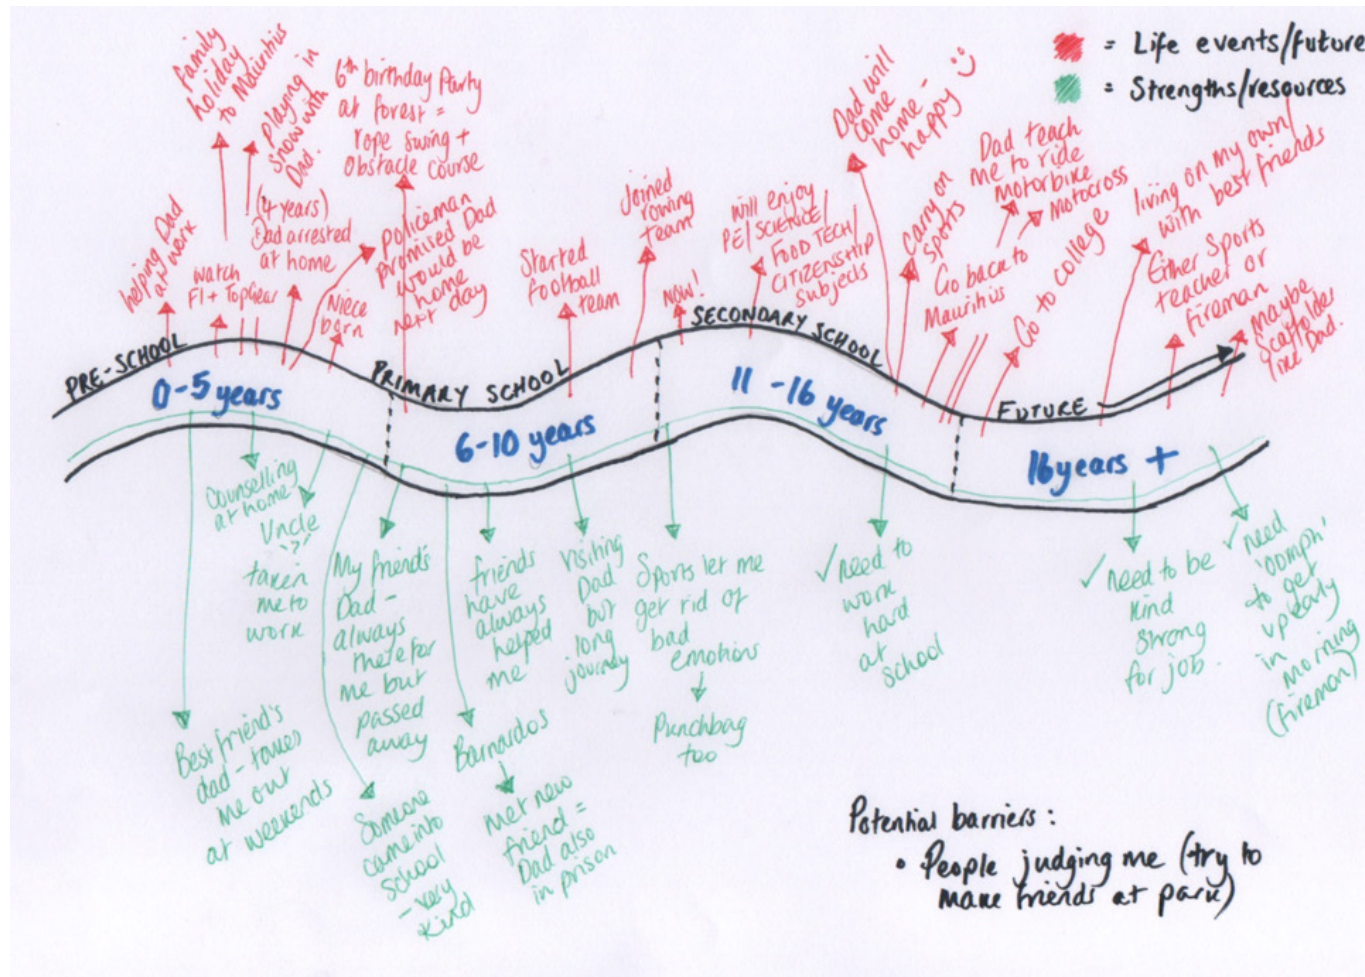 = Life events/future
= Strengths/resources
helping Dad
at work
family
holiday
to Mauritius
watch
F1 + TopGear
playing in
snow with
Dad.
(4 years)
Dad arrested
at home
Niece
born
6th birthday Party
at forest =
rope swing +
obstacle course
policeman
promised Dad
would be
home
next day
Started
football
team
Joined
rowing
team
NOW!
will enjoy
PE/SCIENCE/
FOOD TECH/
CITIZENSHIP
subjects
Dad will
come
home -
happy
carry on
sports
Go back to
Mauritius
Dad teach
me to ride
motorbike
Motocross
Go to college
living on my own/
with best friends
Either Sports
teacher or
fireman
maybe
scaffolder
like Dad.
PRE-SCHOOL
0-5 years
PRIMARY SCHOOL
6-10 years
SECONDARY SCHOOL
11-16 years
FUTURE
16 years +
Best friend's
dad - takes
me out
at weekends
Counselling
at home
Uncle
'?'
taken
me to
work
Someone
came into
School
- very
kind
My friend's
Dad -
always
there for
me but
passed
away
Barnardos
Met new
friend =
Dad also
in prison
friends
have
always
helped
me
Visiting
Dad
but
long
journey
Sports let me
get rid of
bad
emotions
Punchbag
too
✓ need to
work
hard
at
school
✓ need to be
kind
strong
for job.
✓ need
'oomph'
to get
up early
in
morning
(fireman)
Potential barriers:
• People judging me (try to
make friends at park)